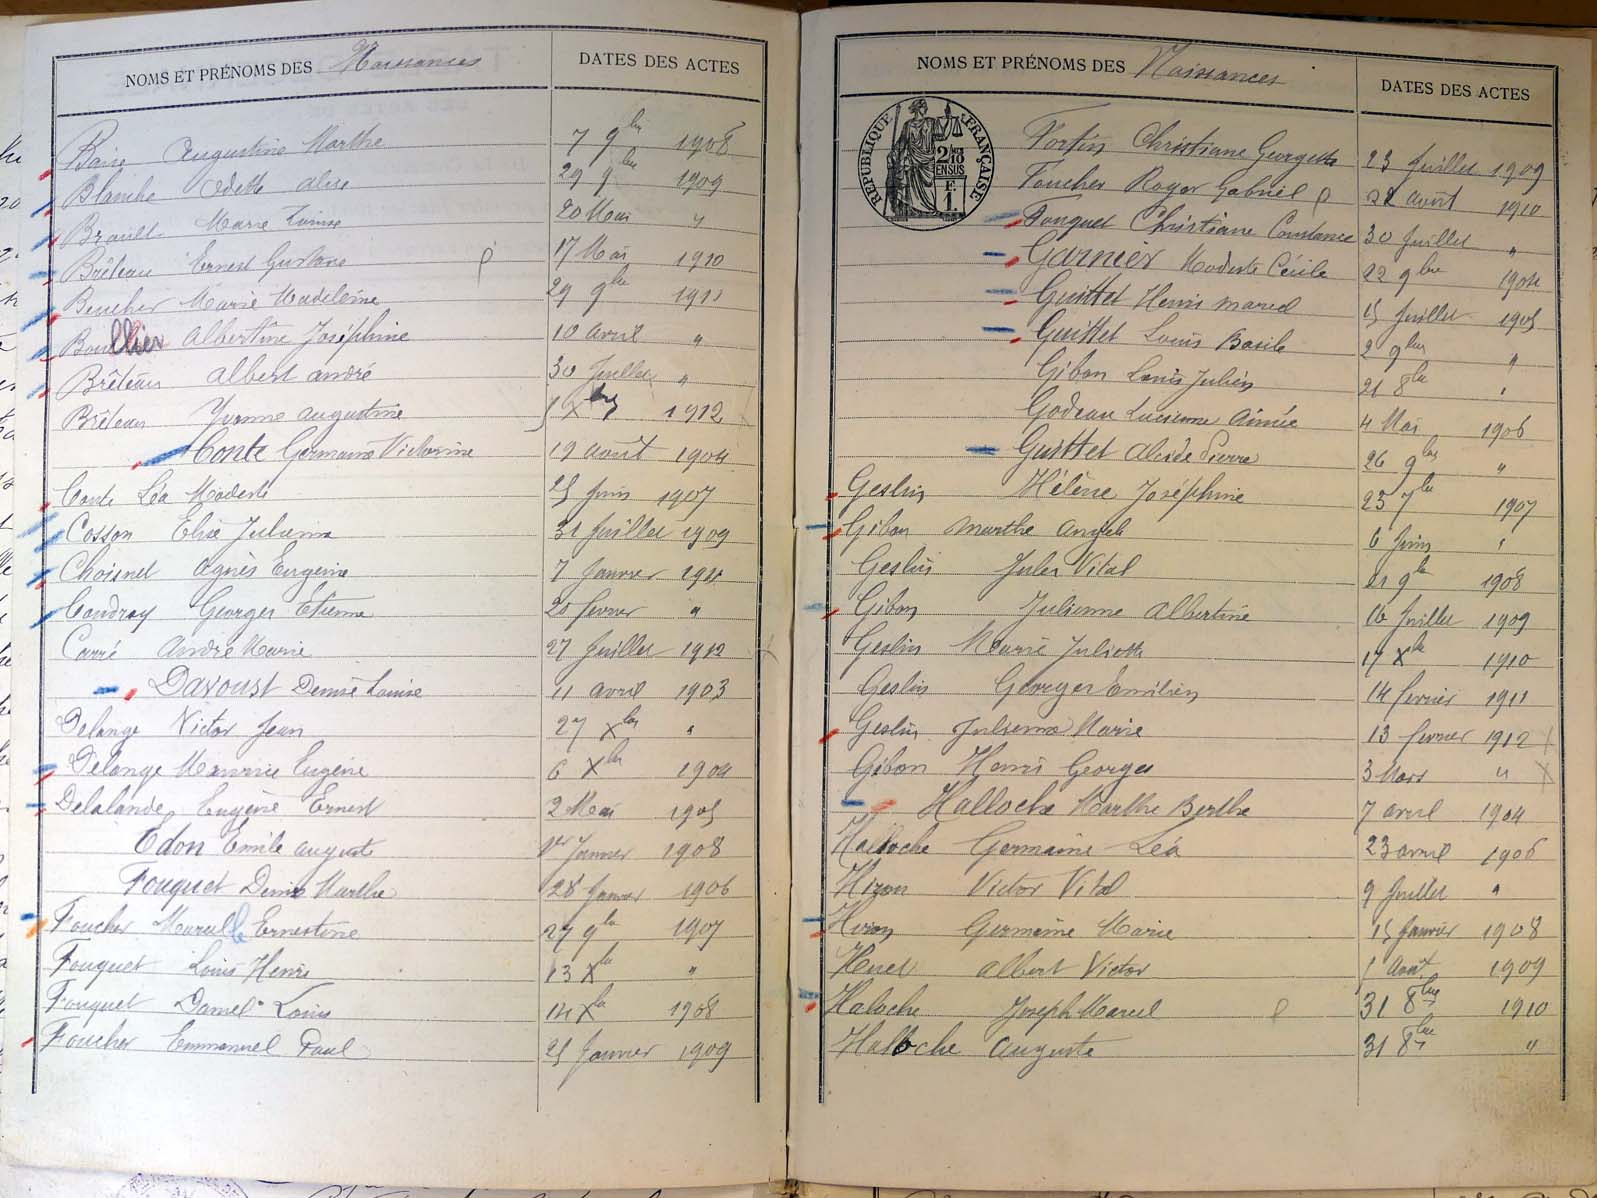 NOMS ET PRÉNOMS DES Naissances DATES DES ACTES
Augustine Marthe 7 9bre 1908
Blanche Odette Alice 29 9bre 1909
Brault Marie Louise 20 Mai "
Brêteau Ernest Gustave 17 Mai 1910
Beucher Marie Madeleine 29 9bre 1911
Boullier Albertine Joséphine 10 avril "
Brêteau Albert André 30 Juillet "
Brêteau Yvonne Augustine 5 Xbre 1912
Conte Germaine Victorine 19 août 1904
Conte Léa Modeste 25 Juin 1907
Cosson Elise Julienne 31 Juillet 1909
Choisnet Agnès Eugénie 7 Janvier 1911
Coudray Georges Etienne 20 fevrier "
Carré André Marie 27 Juillet 1912
Davoust Denise Louise 11 avril 1903
Delange Victor Jean 27 Xbre "
Delange Maurice Eugène 6 Xbre 1904
Delalande Eugène Ernest 2 Mai 1905
Edon Emile August 1er Janvier 1908
Fouquet Denise Marthe 28 Janvier 1906
Foucher Marcelle Ernestine 27 9bre 1907
Fouquet Louis Henri 13 Xbre "
Fouquet Daniel Louis 14 Xbre 1908
Foucher Emmanuel Paul 25 Janvier 1909
NOMS ET PRÉNOMS DES Naissances DATES DES ACTES
RÉPUBLIQUE FRANÇAISE
Fortin Christiane Georgette 23 Juillet 1909
Foucher Roger Gabriel 22 août 1910
Fouquet Christiane Constance 30 Juillet "
Garnier Modeste Cécile 22 9bre 1904
Guittet Henri Marcel 15 Juillet 1905
Guittet Louis Basile 2 9bre "
Gibon Louis Julien 21 8bre "
Godeau Lucienne Aimée 4 Mai 1906
Guittet Alcide Pierre 26 9bre "
Geslin Hélène Joséphine 23 7bre 1907
Gibon Marthe Angèle 6 Juin "
Geslin Jules Vital 21 9bre 1908
Gibon Julienne Albertine 16 Juillet 1909
Geslin Marie Juliette 17 Xbre 1910
Geslin Georges Emilien 14 fevrier 1911
Geslin Julienne Marie 13 fevrier 1912
Gibon Henri Georges 3 Mars "
Halloche Marthe Berthe 7 avril 1904
Halloche Germaine Léa 23 avril 1906
Hiron Victor Vital 9 Juillet "
Hiron Germaine Marie 15 Janvier 1908
Huet Albert Victor 5 Août 1909
Haloche Joseph Marcel 31 8bre 1910
Halloche Auguste 31 8bre "